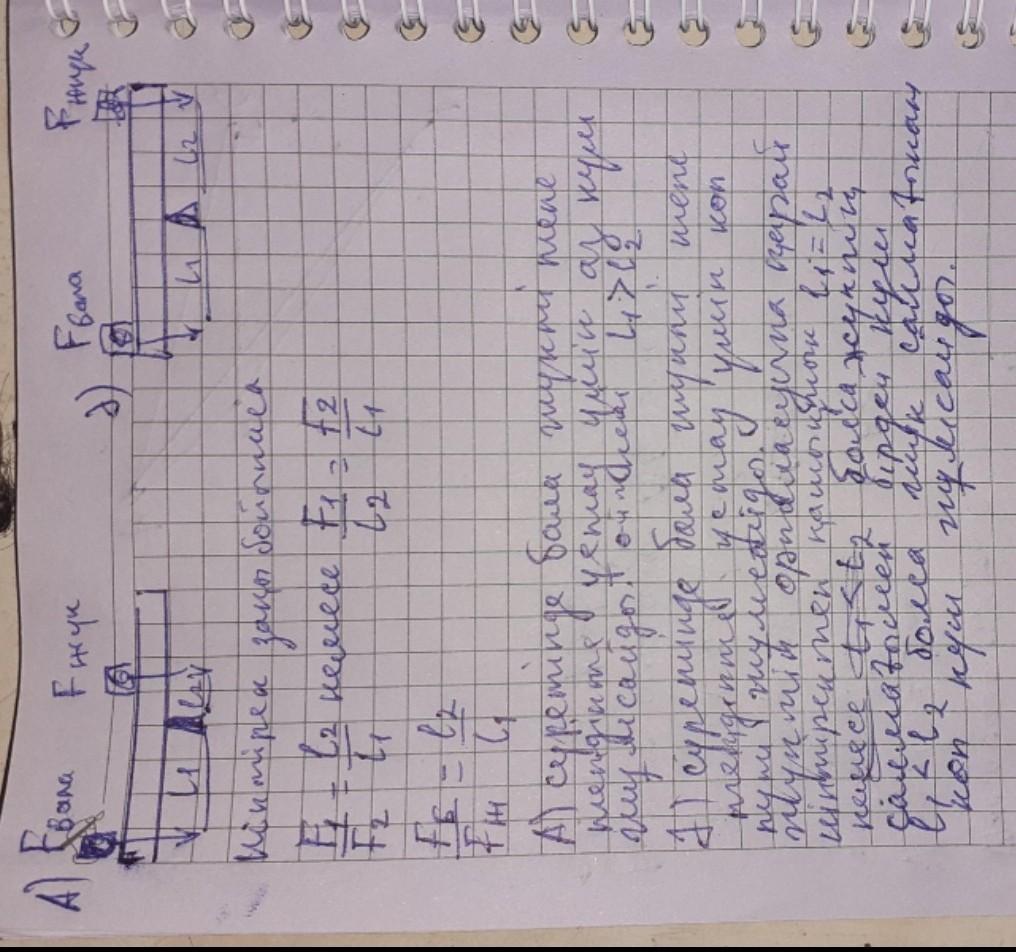 А) Fбала Fжүк
l1 l2
Ә) Fбала Fжүк
l1 l2
Иінтірек заңы бойынша
F1/F2 = l2/l1 немесе F1/l2 = F2/l1
Fб/Fж = l2/l1
А) суретінде бала жүкті тепе
теңдікте ұстау үшін аз күш
жұмсайды. l1 > l2
Ә) суретінде бала жүкті тепе
теңдікте ұстау үшін көп
күш жұмсайды.
жүктің ортасына қарай
иінтіректен l1 = l2
немесе l1 < l2 болса жүктің
салмағымен бірдей күш
l < l2 болса жүк салмағынан
көп күш жұмсайды.